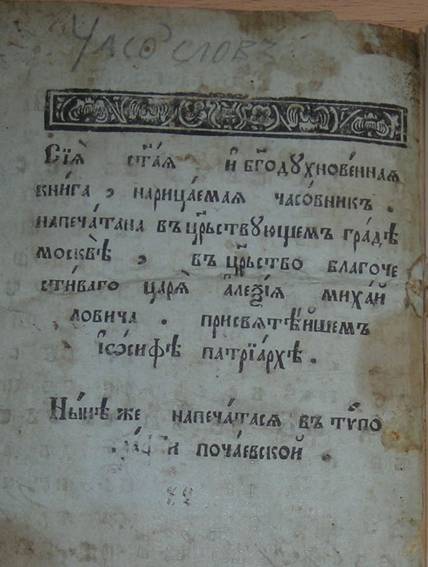 Часословъ
Сїѧ̀ ст҃а́ѧ и҆ бг҃одꙋхнове́ннаѧ
кни́га , нарица́емаѧ часо́вникъ .
напеча́тана въ црⷭ҇твꙋющемъ гра́дѣ
москвѣ̀ , въ црⷭ҇тво благоче
сти́ваго царѧ̀ а҆леѯі́ѧ миха́й
ловича . присвѧтѣ́йшемъ
і҆ѡ́сифѣ патрїа́рхѣ .
Ны́нѣ же напеча́тасѧ въ тѵ́по
гра́фїи поча́евской .